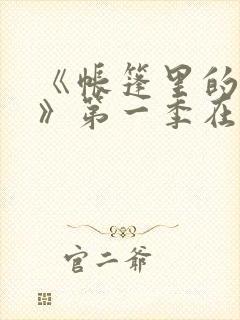 《帐篷里的
》第一季在
官二爷